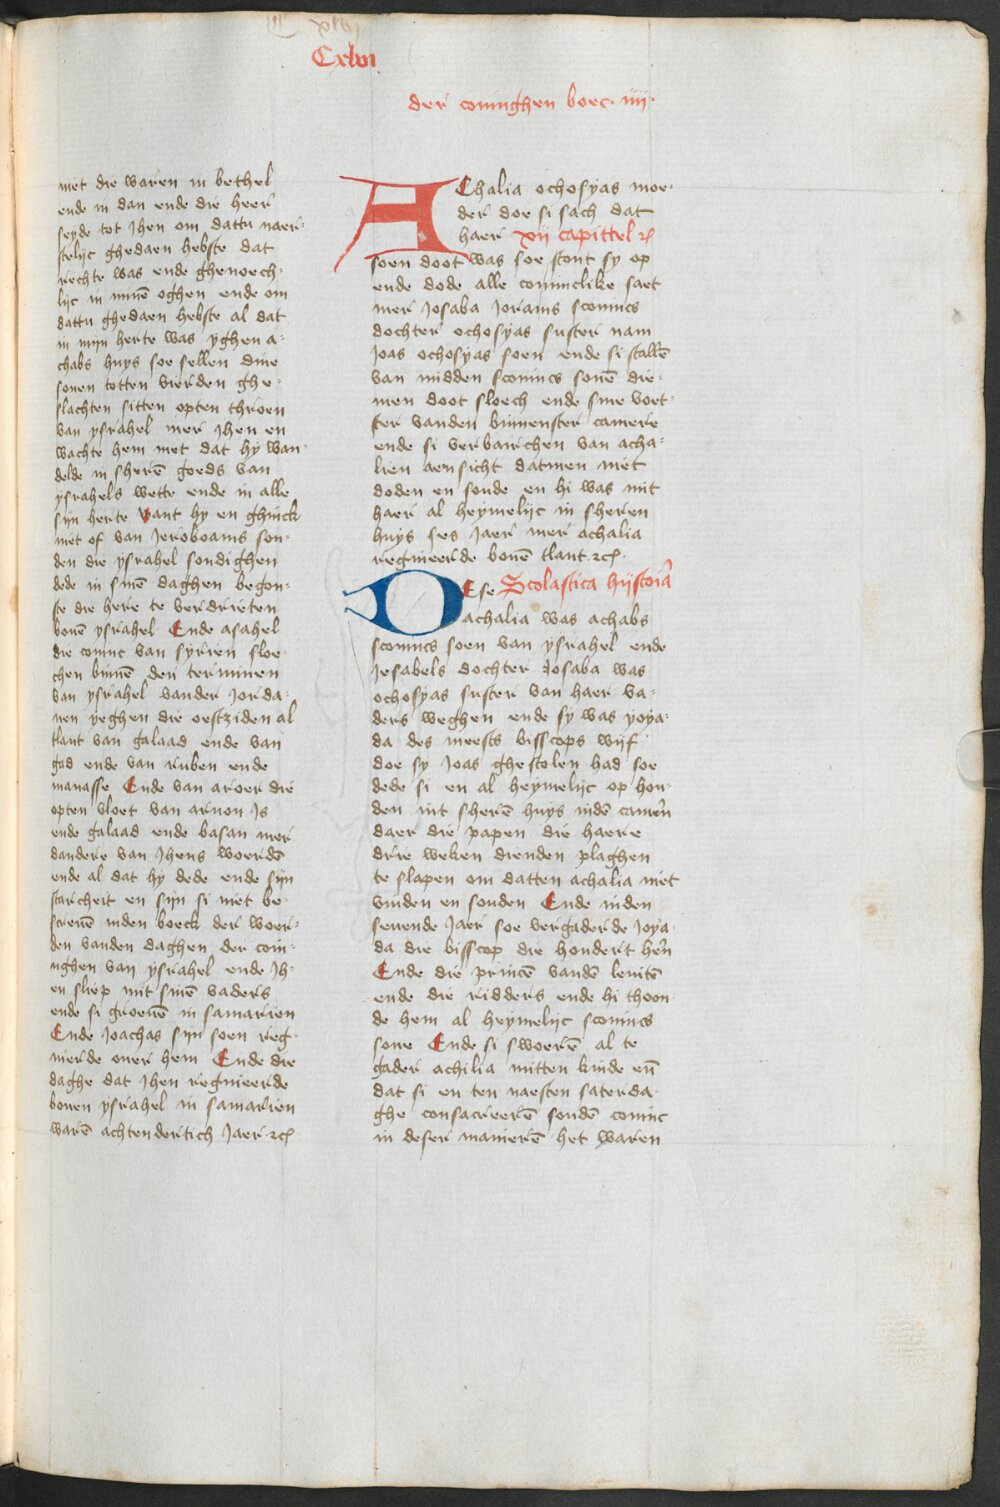 Cxlvi
der coninghen boec · iiii ·
niet die waren in bethel
ende in dan ende die heer
seyde tot Jhen om dattu naer-
stelijc ghedaen hebste dat
rechte was ende ghenoech-
lijc in minē oghen ende om
dattu ghedaen hebste al dat
in mijn herte was yghen a-
chabs huys soe sellen dine
sonen totten vierden ghe-
slachten sitten opten throen
van ysrahel mer Jhen en
wachte hem niet dat hy wan-
delde in sherē goeds van
ysrahels wette ende in alle
sijn herte want hy en ghinck
niet of van Jeroboams son-
den die ysrahel sondighen
dede in sinē daghen begon-
ste die here te verdrieten
bouē ysrahel Ende asahel
die coninc van syrien sloe-
chen binnē den terminen
van ysrahel vander Jorda-
nen yeghen die oestziden al
tlant van galaad ende van
gad ende van ruben ende
manasse Ende van aroer die
opten vloet van arnon Js
ende galaad ende basan mer
dandere van Jhens woerdē
ende al dat hy dede ende sijn
starcheit en sijn si niet be-
screuē inden boeck der woer-
den vanden daghen der coni-
nghen van ysrahel ende Jh-
en sliep mit sinē vaders
ende si groeuē in samarien
Ende Joachas sijn soen reg-
nierde ouer hem Ende die
daghe dat Jhen regnieerde
bouen ysrahel in samarien
warē achtendertich Jaer ·rc·
AChalia ochosyas moe-
der doe si sach dat
haer xii capittel rc
soen doot was soe stont sy op
ende dode alle coninclike saet
mer Josaba Jorams sconincs
dochter ochosyas suster nam
Joas ochosyas soen ende si stallē
van midden sconincs sonē die-
men doot sloech ende sine voet-
ster vanden binnenster camere
ende si verbairchen van acha-
lien aensicht datmen niet
doden en soude en hi was mit
haer al heymelijc in sheren
huys ses Jaer mer achalia
regnieerde bouē tlant ·rc·
DEse Scolastica hystoria
achalia was achabs
sconincs soen van ysrahel ende
Jesabels dochter Josaba was
ochosyas suster van haer va-
ders weghen ende sy was yoya-
da des meests bisscops wijf
doe sy Joas ghestolen had soe
dede si en al heymelijc op hou-
den int sherē huys indē camern
daer die papen die haere
drie weken dienden plaghen
te slapen om datten achalia niet
vinden en souden Ende inden
seuende Jaer soe vergaderde Joya-
da die bisscop die hondert hern
Ende die princē vandē leuitē
ende die ridders ende hi thoon-
de hem al heymelijc sconincs
sone Ende si swoerē al te
gader achilia mitten kinde eñ
dat si en ten naesten saterda-
ghe consacreerē soudē coninc
in deser manierē het waren